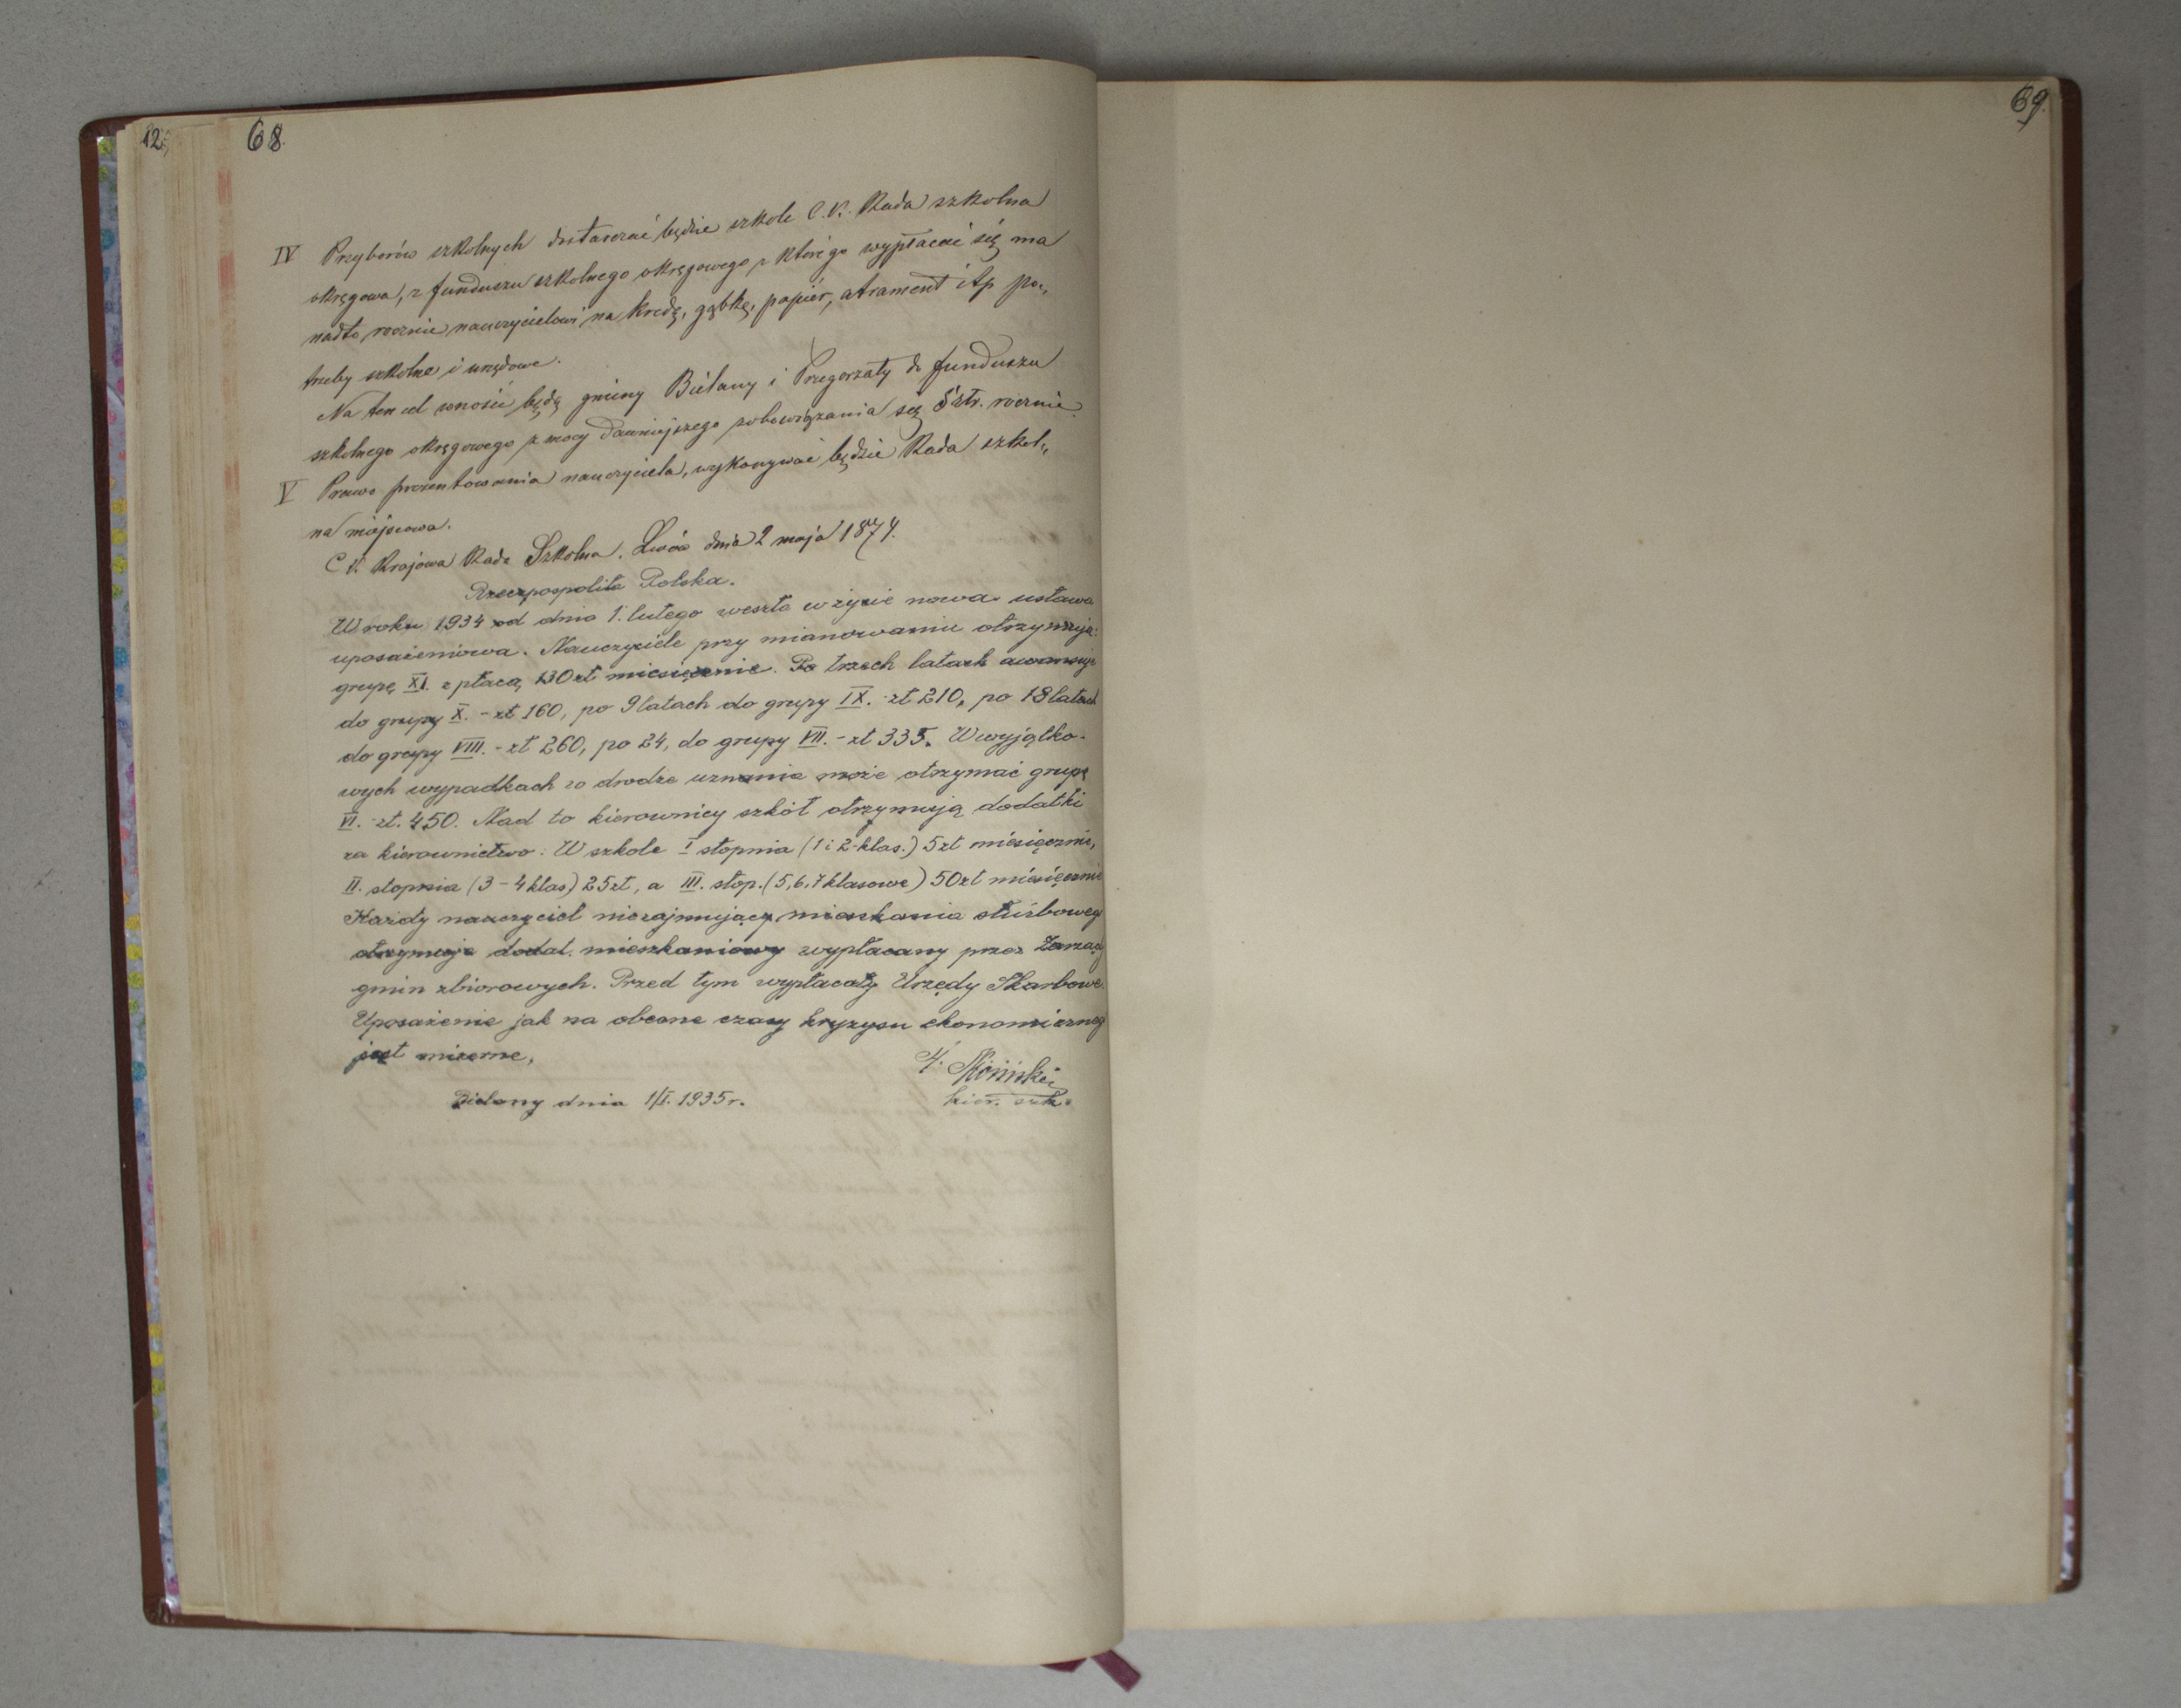 12.
68.
69.
IV Przyborów szkolnych dostarczać będzie szkole C. K. Rada szkolna
okręgowa, z funduszu szkolnego okręgowego z którego wypłacać się ma
nadto rocznie nauczycielowi na kredę, gąbkę, papiér, atrament itp po„
trzeby szkolne i urzędowe.
Na ten cel wnosić będą gminy Bielany i Przegorzały do funduszu
szkolnego okręgowego z mocy dawniejszego zobowiązania się 5 złr. rocznie.
V Prawo prezentowania nauczyciela, wykonywać będzie Rada szkol„
na miejscowa.
C K. Krajowa Rada Szkolna. Lwów dnia 2 maja 1874.
Rzeczpospolita Polska.
W roku 1934 od dnia 1. lutego weszła w życie nowa ustawa
uposażeniowa. Nauczyciele przy mianowaniu otrzymują:
grupę XI. z płacą 130 zł miesięcznie. Po trzech latach awansuje
do grupy X. - zł 160, po 9 latach do grupy IX. zł 210, po 18 latach
do grupy VIII. - zł 260, po 24, do grupy VII. - zł 335. W wyjątko-
wych wypadkach w drodze uznania może otrzymać grupę
VI. - zł. 450. Nad to kierownicy szkół otrzymują dodatki
za kierownictwo: W szkole I stopnia (1 i 2-klas.) 5 zł miesięcznie,
II. stopnia (3 - 4 klas) 25 zł, a III. stop. (5, 6, 7 klasowe) 50 zł miesięcznie
Każdy nauczyciel niezajmujący mieszkania służbowego
otrzymuje dodat. mieszkaniowy wypłacany przez Zarząd
gmin zbiorowych. Przed tym wypłacały Urzędy Skarbowe.
Uposażenie jak na obecne czasy kryzysu ekonomicznego
jest mizerne,
Bielany dnia 1/I. 1935 r.
kier. szk.